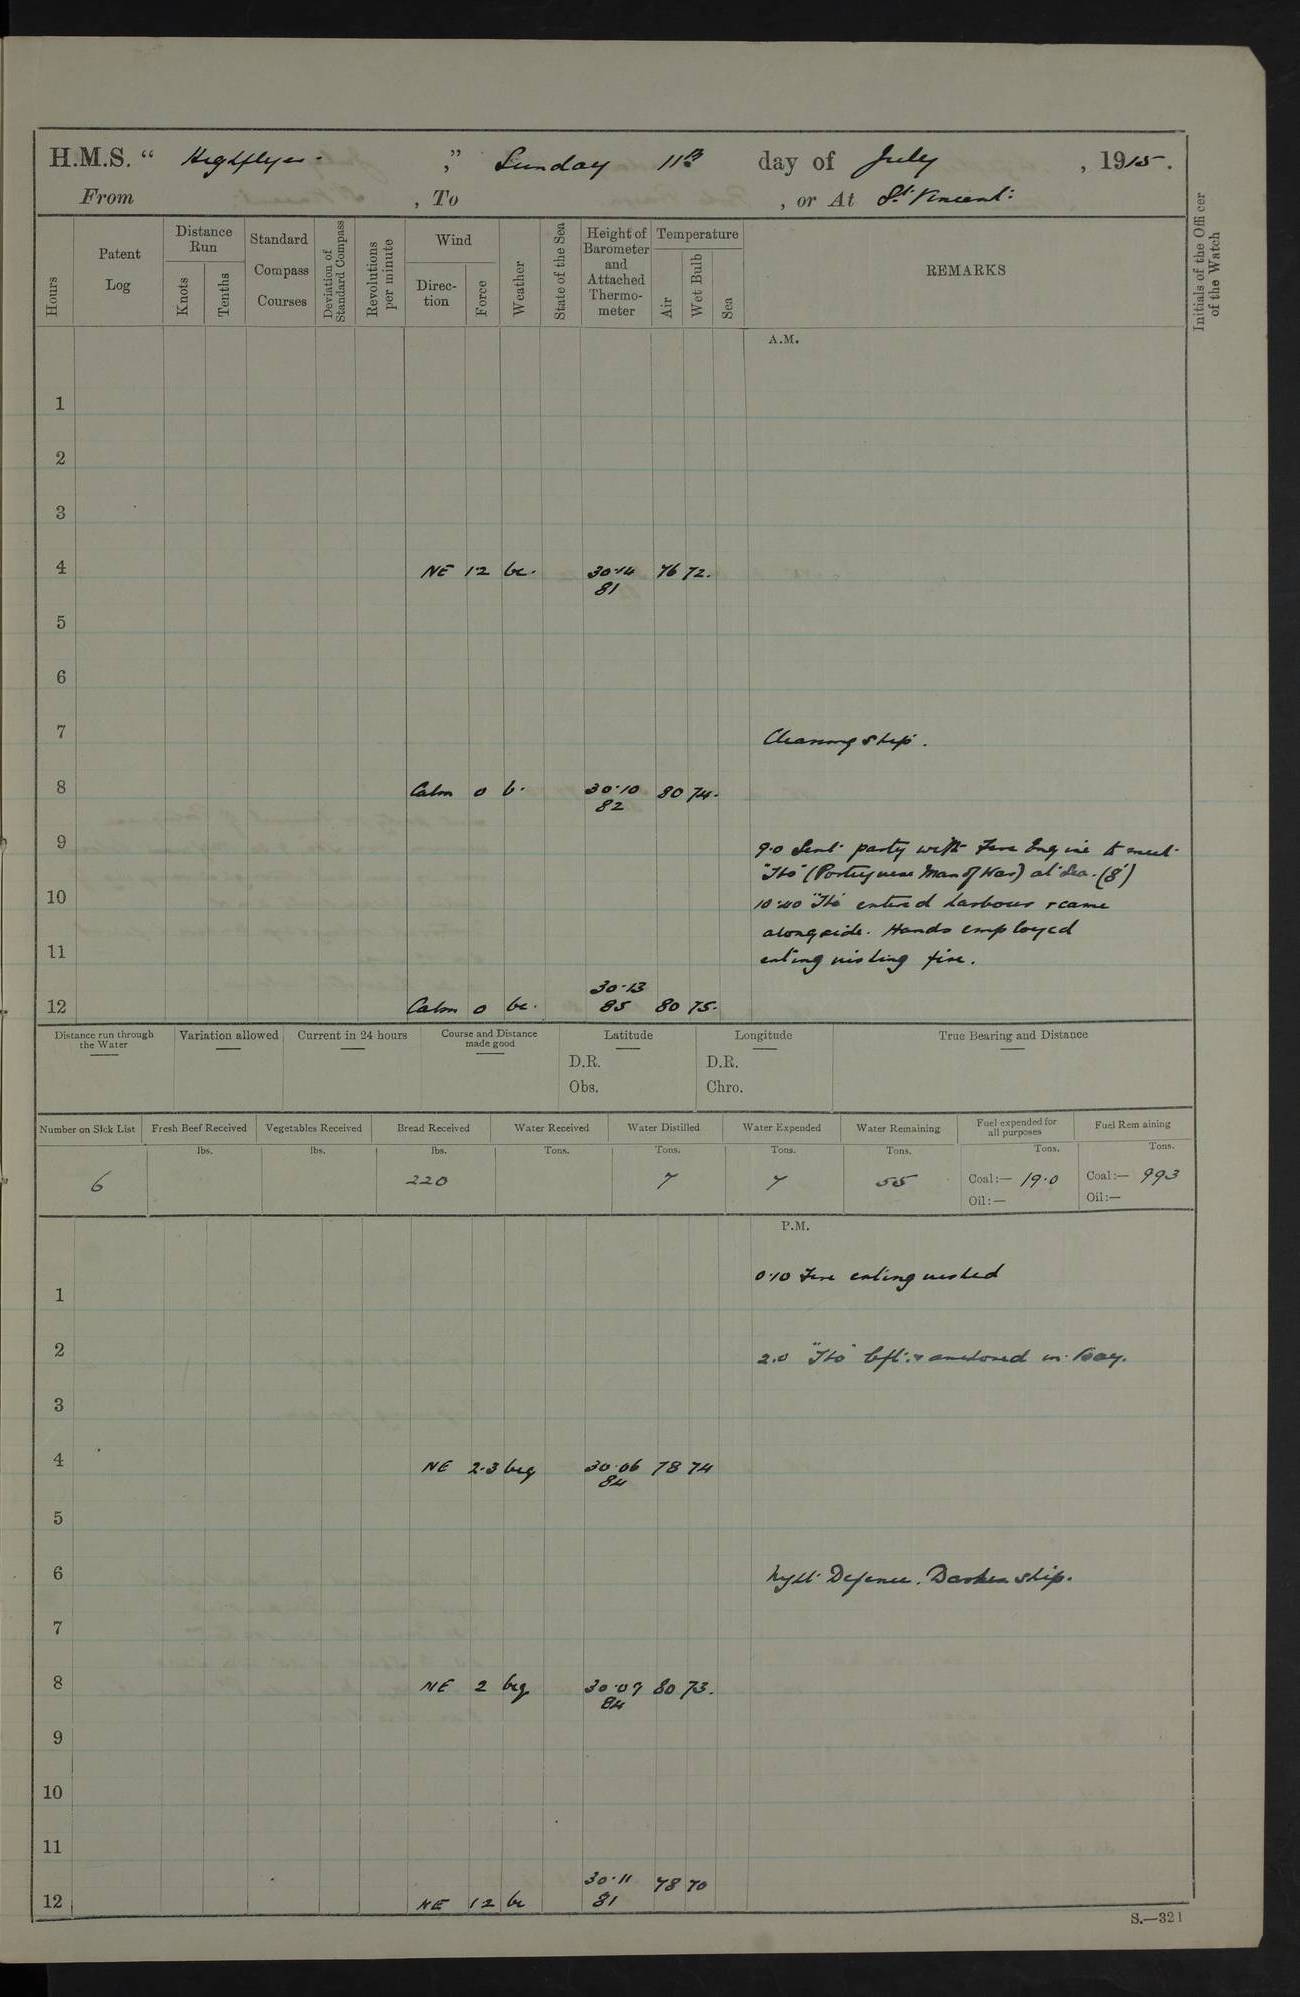 H.M.S. “ Highflyer. ,” Sunday 11th day of July , 1915.
From , To , or At St. Vincent.
Hours
Patent Log
Distance Run
Knots
Tenths
Standard Compass Courses
Deviation of Standard Compass
Revolutions per minute
Wind
Direc-tion
Force
Weather
State of the Sea
Height of Barometer and Attached Thermo-meter
Temperature
Air
Wet Bulb
Sea
REMARKS
Initials of the Officer of the Watch
A.M.
1
2
3
4 NE 1·2 bc. 30·14 76 72.
81
5
6
7 Cleaning ship.
8 Calm 0 b. 30·10 80 74.
82
9 9.0 Sent party with Fire Engine to meet
"Ibo" (Portuguese Man of War) at Sea. (8)
10 10·40 "Ibo" entered harbour & came
alongside. Hands employed
11 extinguishing fire.
30·13
12 Calm 0 bc. 85 80 75.
Distance run through the Water
Variation allowed
Current in 24 hours
Course and Distance made good
Latitude
D.R.
Obs.
Longitude
D.R.
Chro.
True Bearing and Distance
Number on Sick List
Fresh Beef Received
Vegetables Received
Bread Received
Water Received
Water Distilled
Water Expended
Water Remaining
Fuel expended for all purposes
Fuel Remaining
lbs. lbs. lbs. Tons. Tons. Tons. Tons. Tons. Tons.
6 220 7 7 55 Coal:— 19·0 Coal:— 993
Oil:— Oil:—
P.M.
0·10 Fire extinguished
1
2 2.0 "Ibo" left & anchored in Bay.
3
4 NE 2·3 bcq 30·06 78 74
84
5
6 Night Defence. Darken ship.
7
8 NE 2 bcq 30·09 80 73.
84
9
10
11
30·11 78 70
12 NE 1 2 bc 81
S.—321